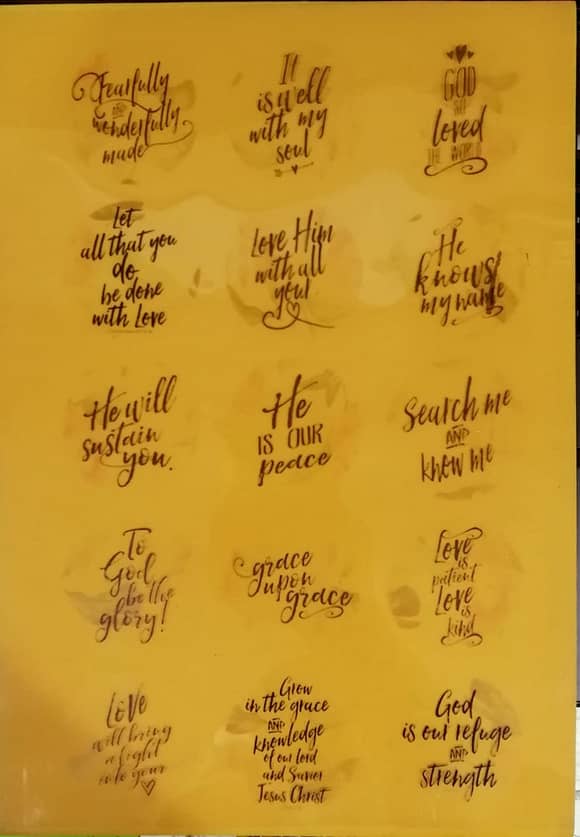 Fearfully
AND
wonderfully
made
It
is well
with my
soul
GOD
SO
Loved
THE WORLD
Let
all that you
do
be done
with Love
Love Him
with all
you!
He
knows
my name
He will
sustain
you.
He
IS OUR
peace
Search me
AND
know me
To
God
be the
glory!
grace
upon
grace
Love
is
patient
Love
is
kind
Love
will bring
a light
into your
Grow
in the grace
AND
knowledge
of our Lord
and Savior
Jesus Christ
God
is our refuge
AND
strength